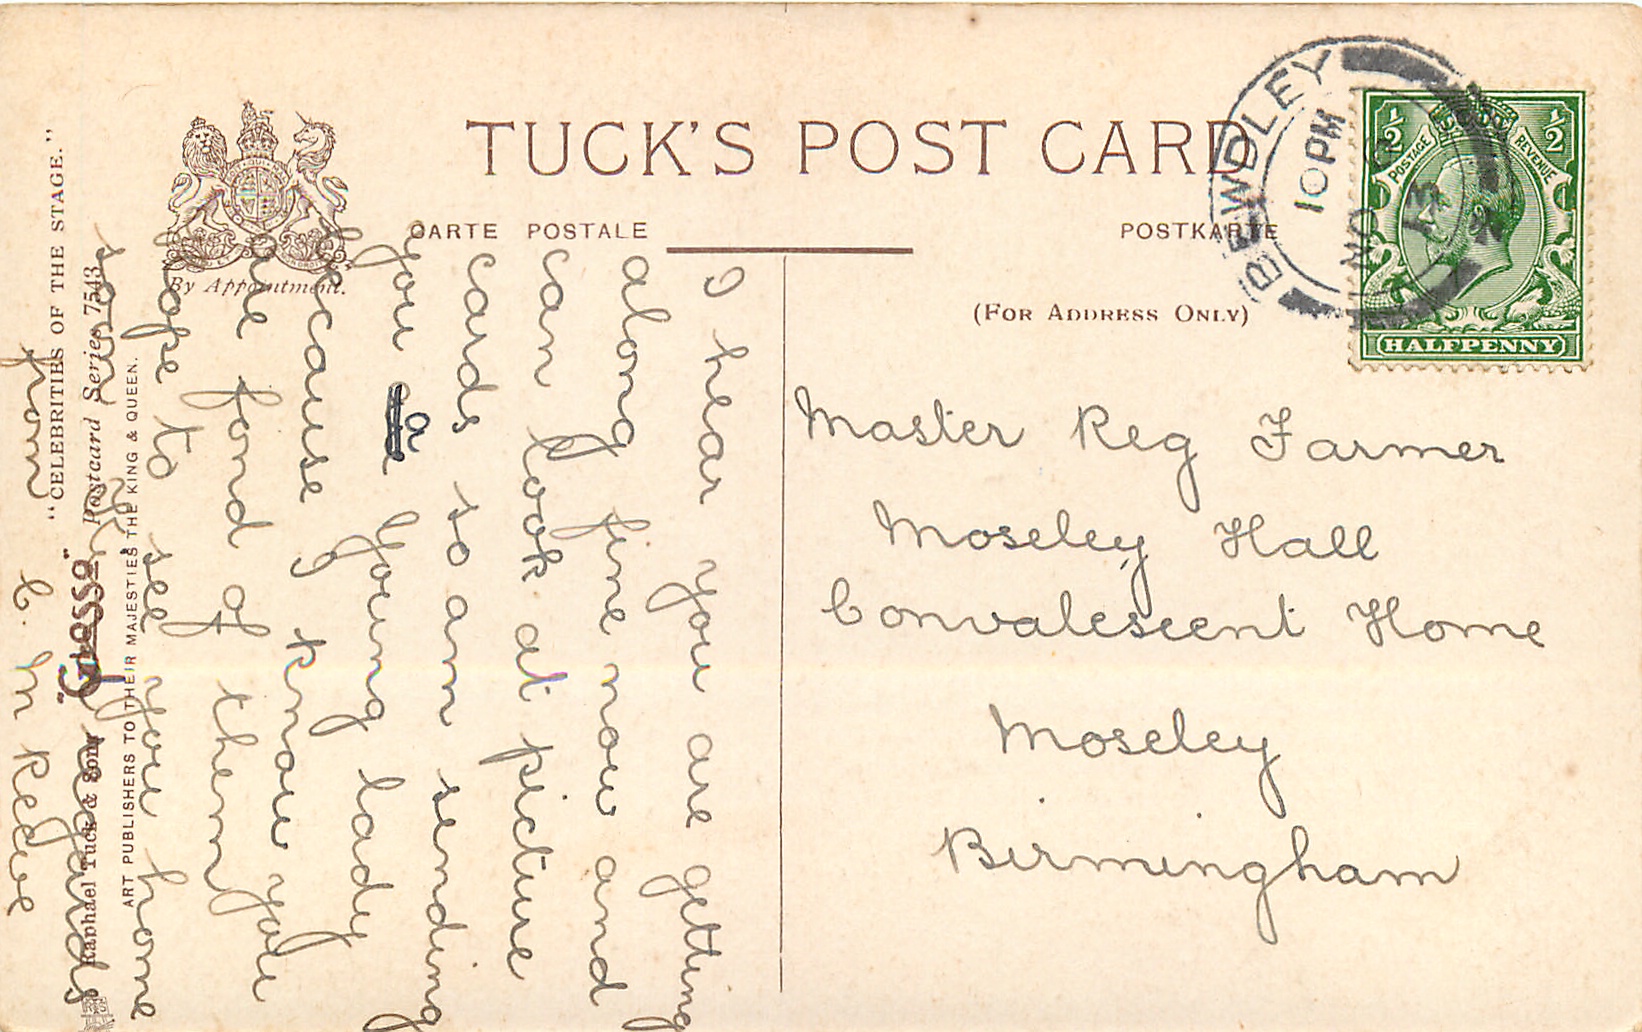 TUCK'S POST CARD
CARTE POSTALE
POSTKARTE
(FOR ADDRESS ONLY)
By Appointment.
BEWDLEY
10 PM
NO
13
POSTAGE
REVENUE
½
½
HALFPENNY
Master Reg Farmer
Moseley Hall
Convalescent Home
Moseley
Birmingham
I hear you are getting
along fine now and
can look at picture
cards so am sending
you a young lady
because I know you
are fond of them
hope to see you home
soon
regards
from C. M Reeve
"CELEBRITIES OF THE STAGE."
Postcard Series 7543
"Glosso"
Raphael Tuck & Sons
ART PUBLISHERS TO THEIR MAJESTIES THE KING & QUEEN.